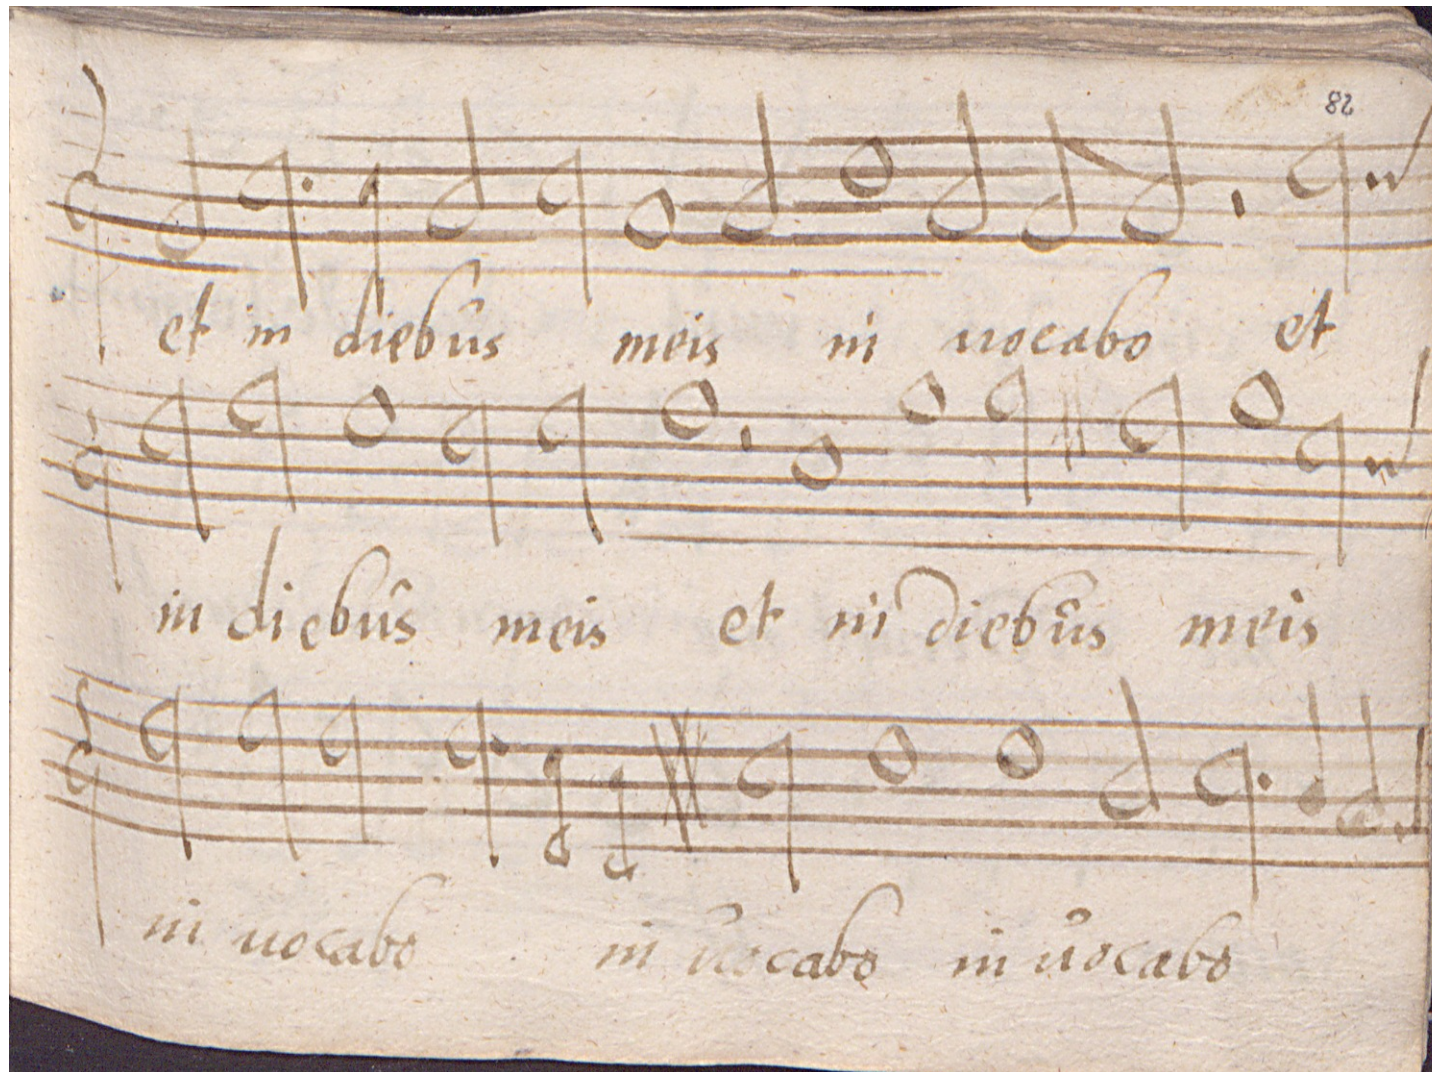 82
et in diebus meis in uocabo et
in diebus meis et in diebus meis
in uocabo in uocabo in uocabo